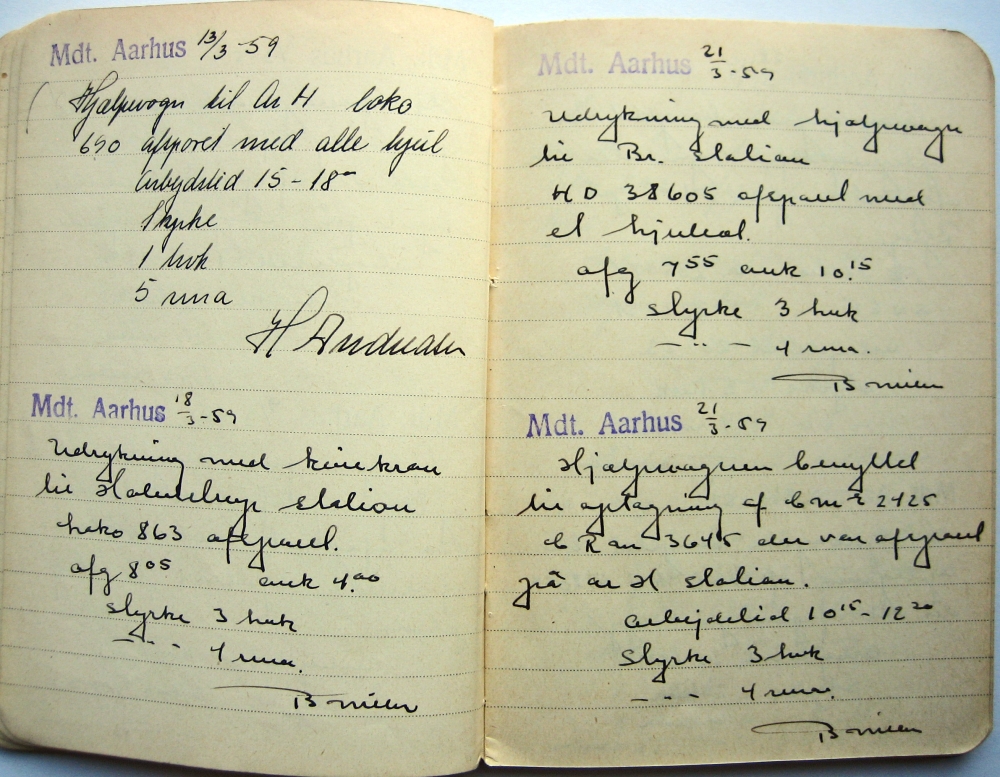 Mdt. Aarhus 13/3-59
Hjælpevogn til Ar H loko
690 afsporet med alle hjul
arbejdstid 15-18
Styrke
1 hvk
5 rma
H Andreasen
Mdt. Aarhus 18/3-59
Udrykning med
til station
Loko 863 afsporet.
afg 8 05 ank 4.00
styrke 3 hvk
— ·· - 4 rma.
B
Mdt. Aarhus 21/3-59
Udrykning med hjælpevogn
til Br. station
HD 38605 afsporet med
et hjulsæt.
afg 7 55 ank 10.15
styrke 3 hvk
— ·· — 4 rma.
B
Mdt. Aarhus 21/3-59
Hjælpevognen benyttet
til optagning af 2425
3645 der var afsporet
på ar H station.
arbejdstid 10 15 - 12 20
Styrke 3 hvk
- - - 4 rma.
B